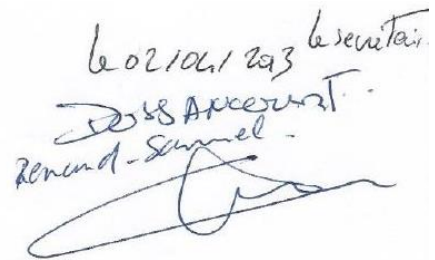 le 02/04/2013 le secrétair
DOSSANCOURT.
Renaud-Samuel.